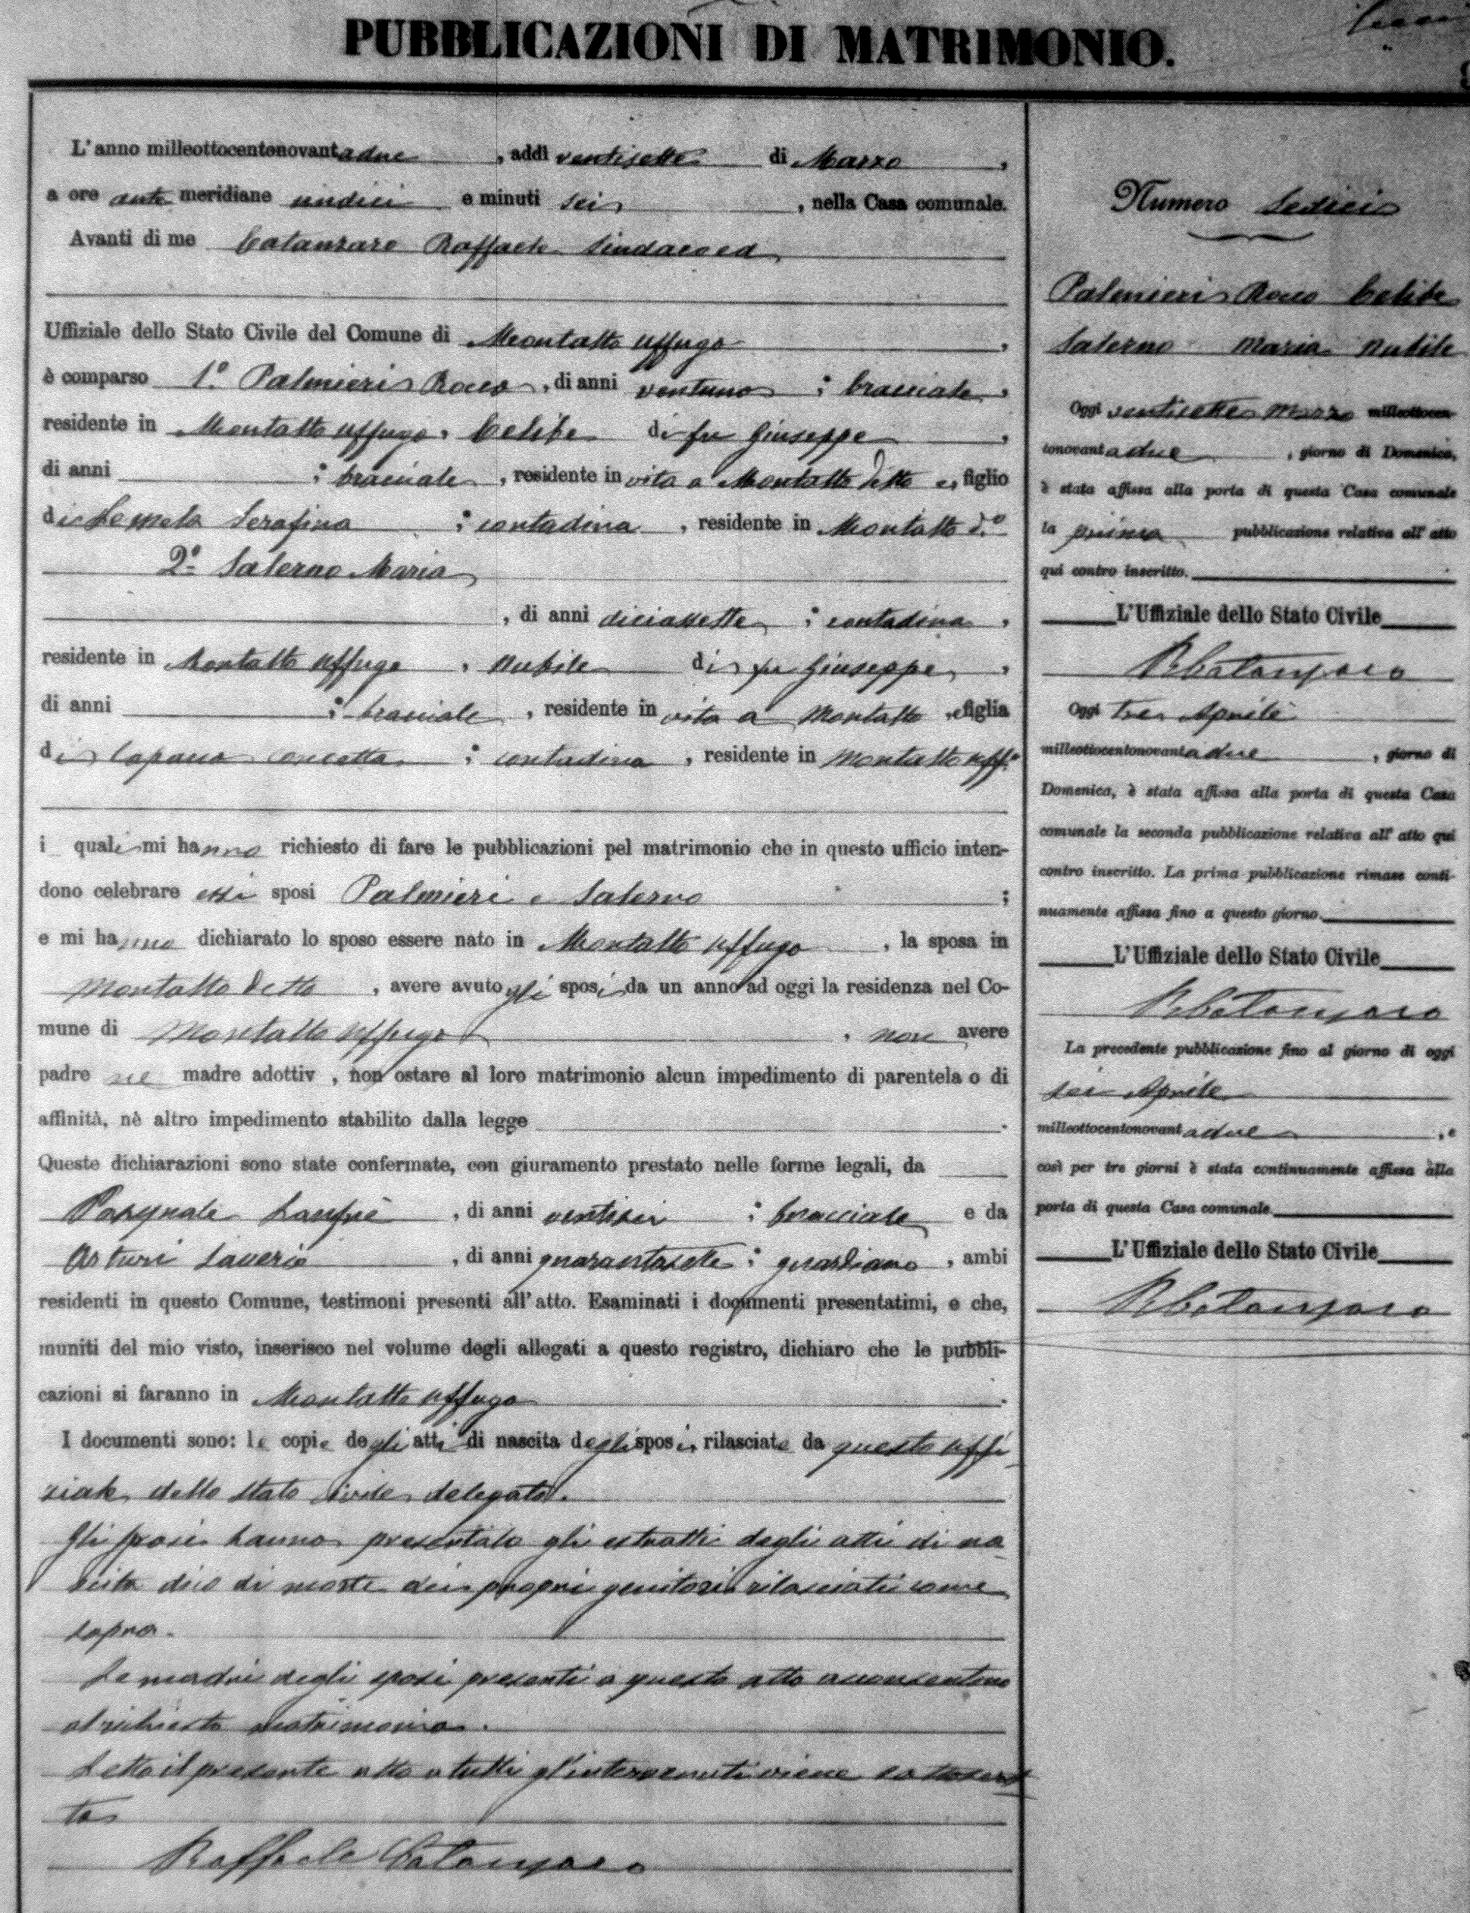 PUBBLICAZIONI DI MATRIMONIO.
L'anno milleottocentonovantadue, addì ventisette di Marzo,
a ore ante meridiane undici e minuti sei, nella Casa comunale.
Avanti di me Catanzaro Raffaele Sindaco ed
Uffiziale dello Stato Civile del Comune di Montalto Uffugo,
è comparso 1.° Palmieri Rocco, di anni ventuno; bracciale,
residente in Montalto Uffugo, Celibe di fu Giuseppe,
di anni ; bracciale, residente in vita a Montalto detto e figlio
di Serafina; contadina, residente in Montalto d.°
2° Salerno Maria
, di anni diciassette; contadina,
residente in Montalto Uffugo, nubile di fu Giuseppe,
di anni ; bracciale, residente in vita a Montalto, e figlia
di Concetta; contadina, residente in Montalto Uff.°
i quali mi hanno richiesto di fare le pubblicazioni pel matrimonio che in questo ufficio inten-
dono celebrare essi sposi Palmieri e Salerno;
e mi hanno dichiarato lo sposo essere nato in Montalto Uffugo, la sposa in
Montalto detto, avere avuto gli sposi da un anno ad oggi la residenza nel Co-
mune di Montalto Uffugo, non avere
padre ne madre adottiv , non ostare al loro matrimonio alcun impedimento di parentela o di
affinità, nè altro impedimento stabilito dalla legge .
Queste dichiarazioni sono state confermate, con giuramento prestato nelle forme legali, da
Pasquale, di anni ventisei; bracciale e da
Asturi Saverio, di anni quarantasette; guardiano, ambi
residenti in questo Comune, testimoni presenti all'atto. Esaminati i documenti presentatimi, e che,
muniti del mio visto, inserisco nel volume degli allegati a questo registro, dichiaro che le pubbli-
cazioni si faranno in Montalto Uffugo.
I documenti sono: le copie degli atti di nascita degli sposi, rilasciate da questo uffi
ziale dello stato civile delegato.
Gli sposi hanno presentato gli estratti degli atti di na
scita dico di morte dei propri genitori rilasciati come
sopra.
Le madri degli sposi presenti a questo atto acconsentono
al richiesto matrimonio.
Letto il presente atto a tutti gl'intervenuti viene sottoscrit
to
Raffaele Catanzaro
Numero Sedici
Palmieri Rocco Celibe
Salerno Maria nubile
Oggi ventisette Marzo milleottocen-
tonovantadue, giorno di Domenica,
è stata affissa alla porta di questa Casa comunale
la prima pubblicazione relativa all'atto
qui contro inscritto.
L'Uffiziale dello Stato Civile
R Catanzaro
Oggi tre Aprile
milleottocentonovantadue, giorno di
Domenica, è stata affissa alla porta di questa Casa
comunale la seconda pubblicazione relativa all'atto qui
contro inscritto. La prima pubblicazione rimase conti-
nuamente affissa fino a questo giorno.
L'Uffiziale dello Stato Civile
R Catanzaro
La precedente pubblicazione fino al giorno di oggi
sei Aprile
milleottocentonovantadue, e
così per tre giorni è stata continuamente affissa alla
porta di questa Casa comunale.
L'Uffiziale dello Stato Civile
R Catanzaro